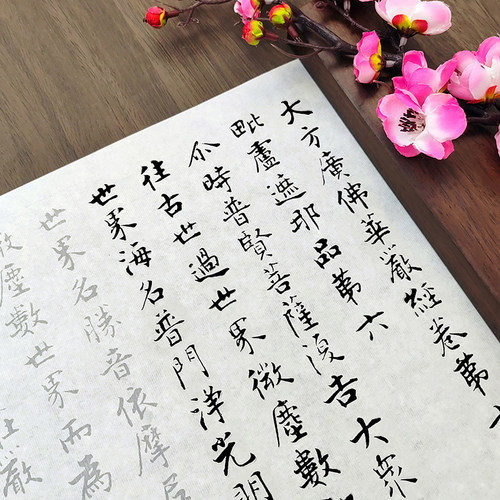 大方廣佛華嚴經卷第
毗盧遮那品第六
尒時普賢菩薩復告大眾
往古世過世界微塵數
世界海名普門淨光明
世界名勝音依摩尼
微塵數世界而為
嚴